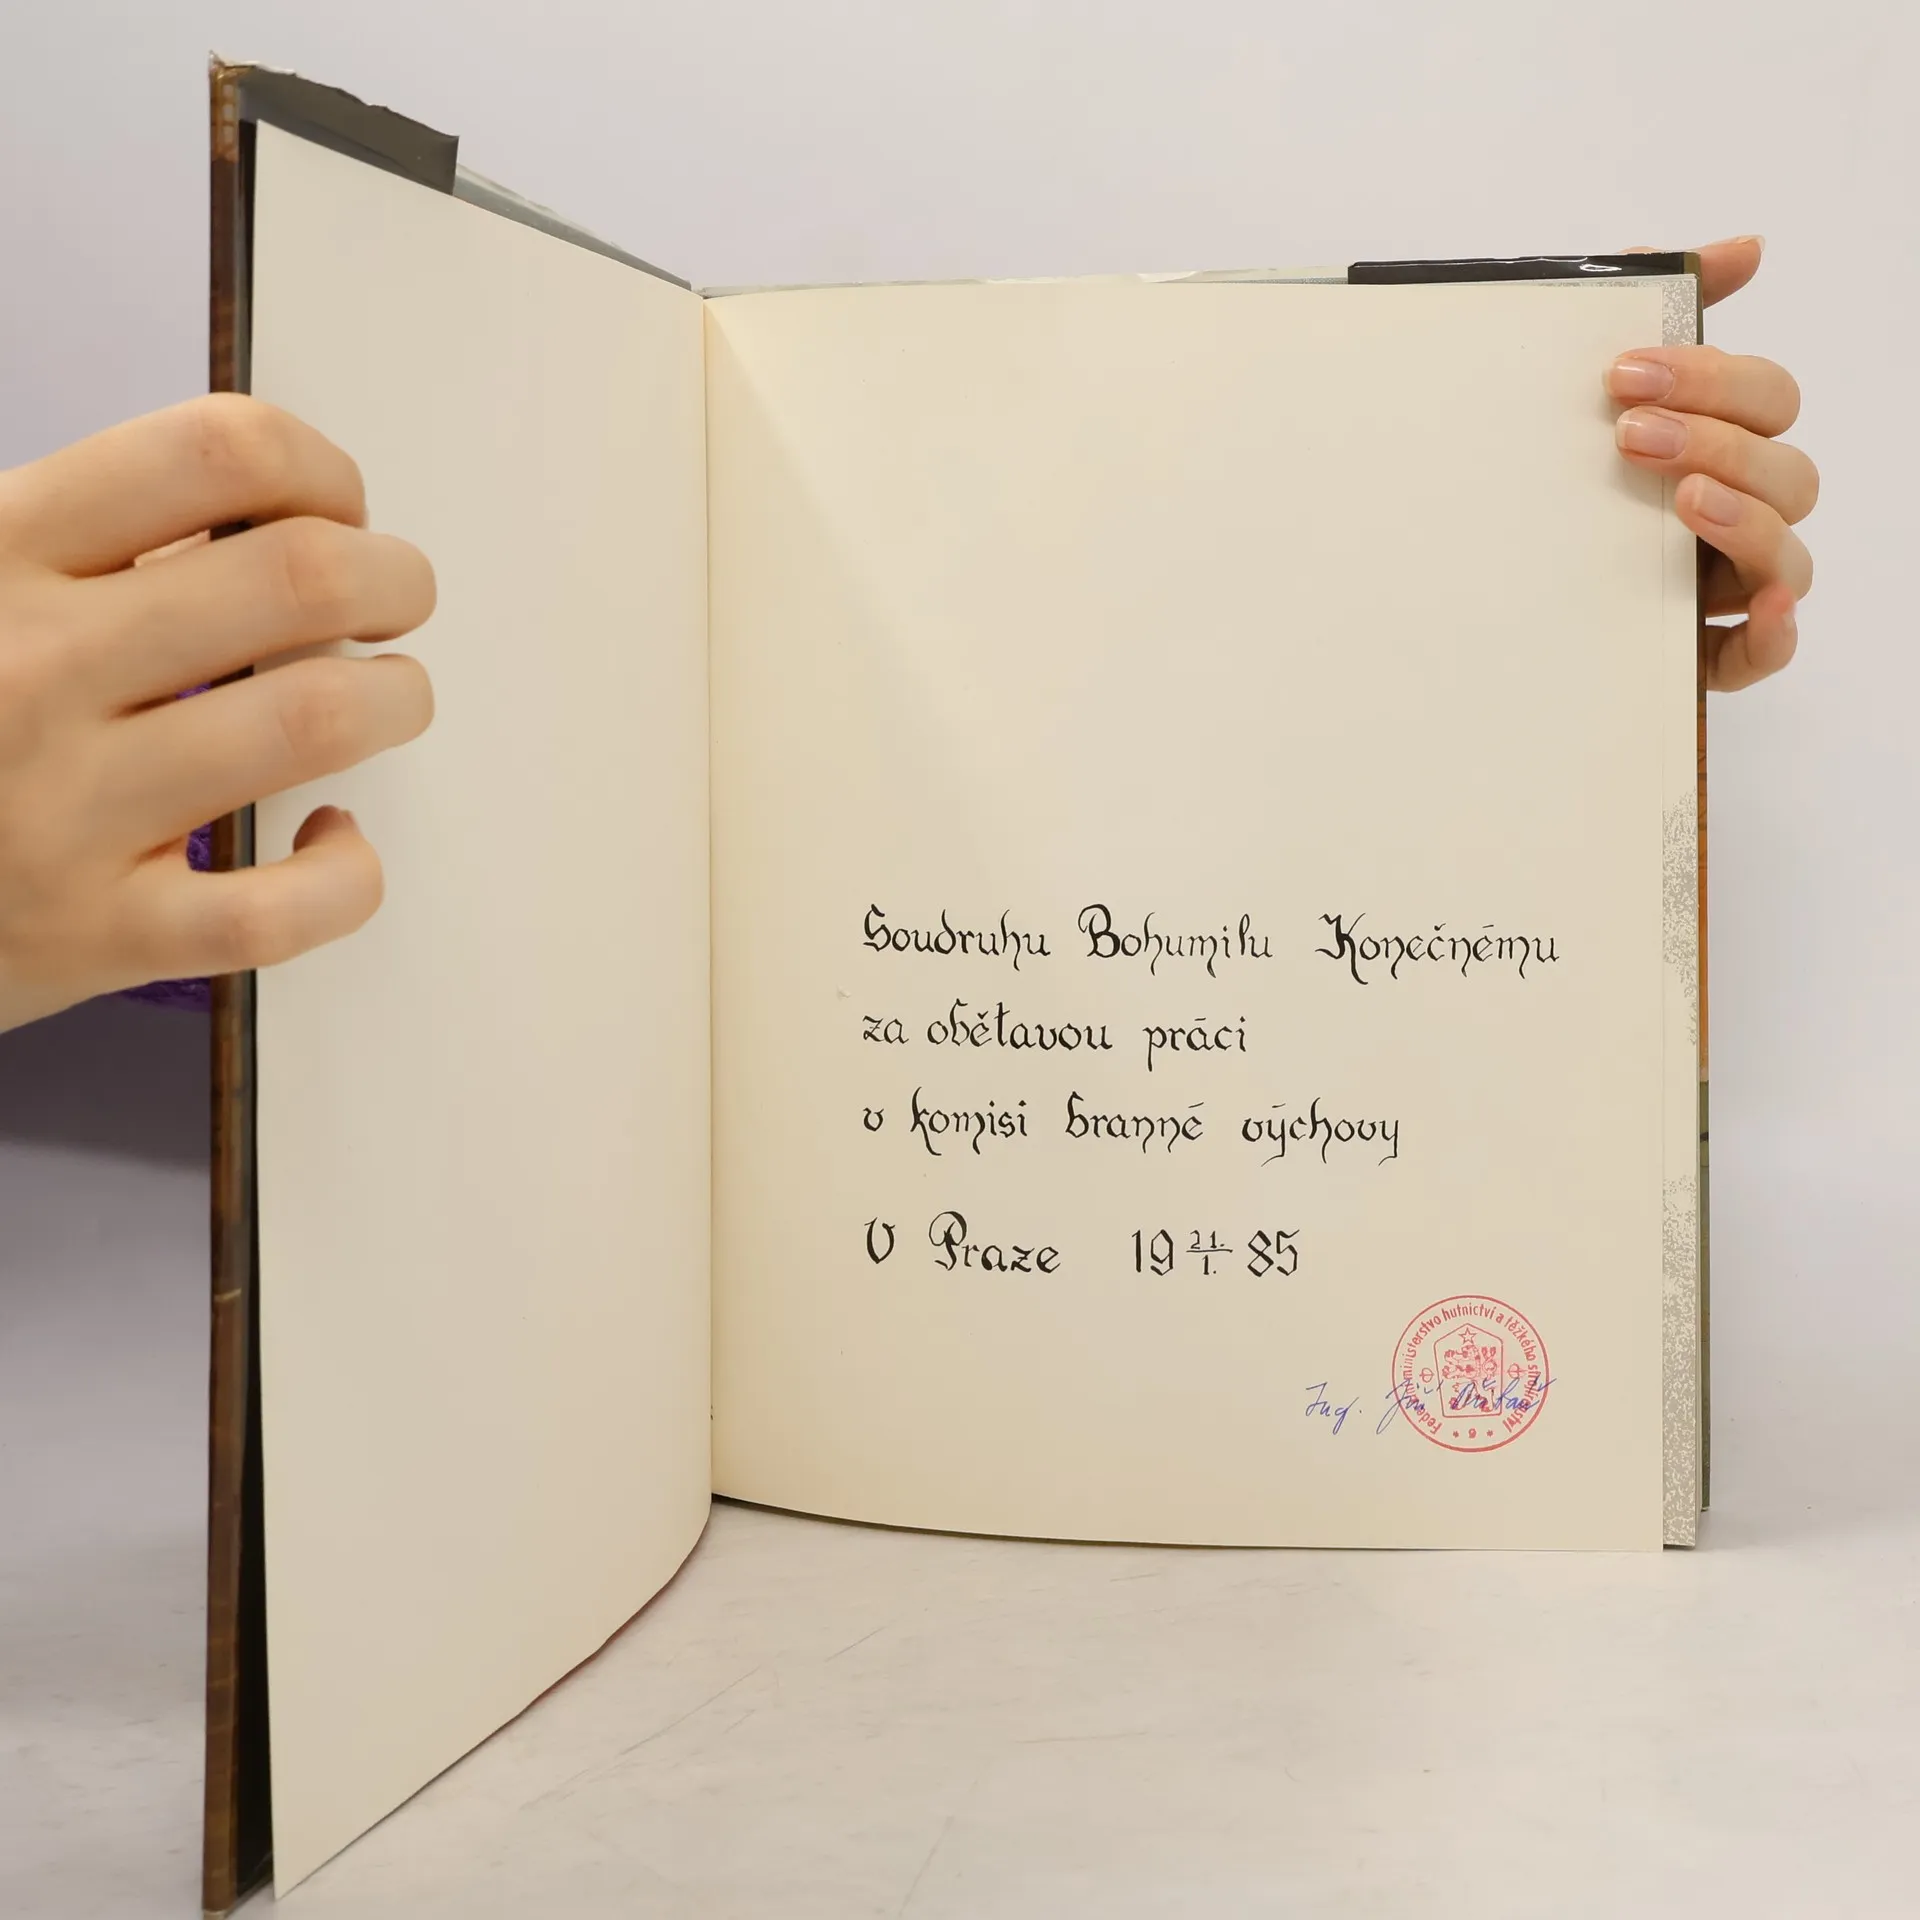 Soudruhu Bohumilu Konečnému
za obětavou práci
v komisi branné výchovy
V Praze 19 21./1. 85
Federální ministerstvo hutnictví a těžkého strojírenství
* 6 *
Ing. Jiří